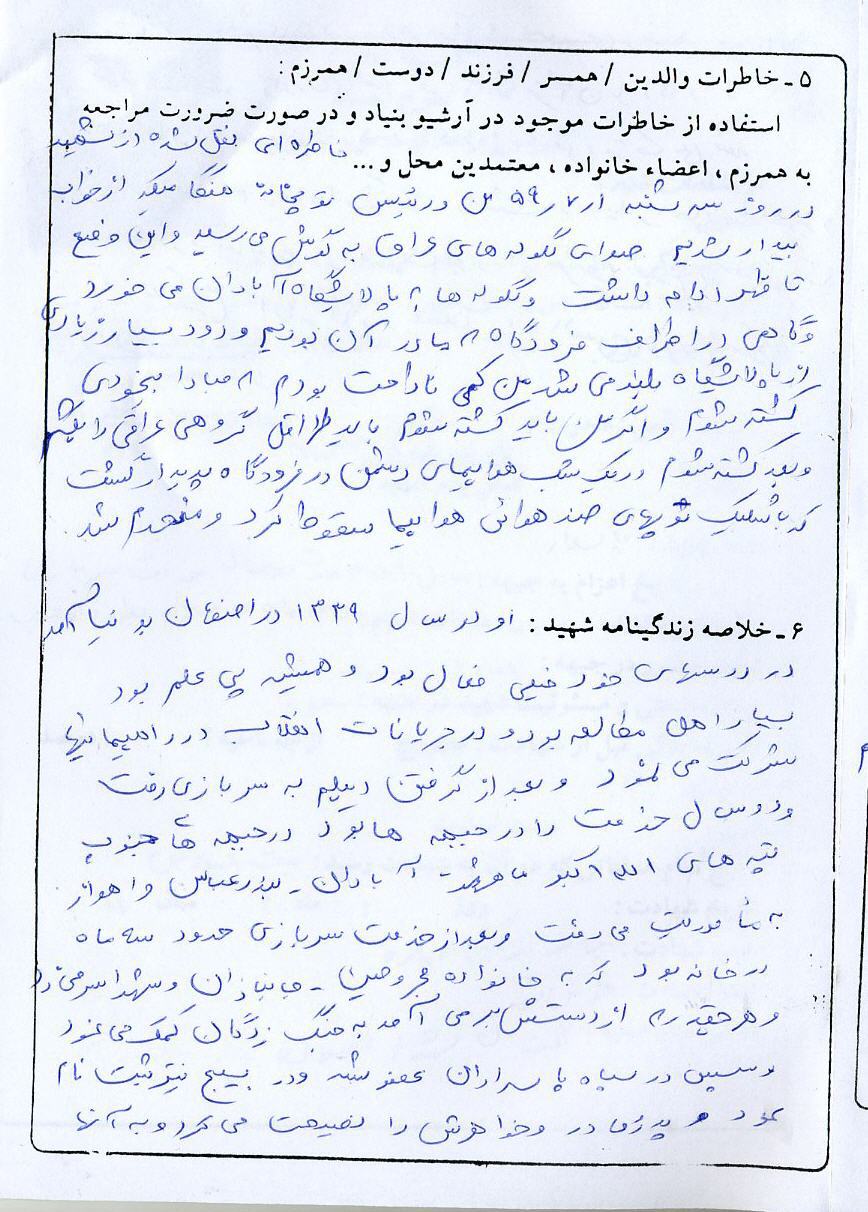 ۵ - خاطرات والدین / همسر / فرزند / دوست / همرزم :
استفاده از خاطرات موجود در آرشیو بنیاد و در صورت ضرورت مراجعه
به همرزم ، اعضاء خانواده ، معتمدین محل و... خاطره ای نقل شده از شهید
در روز سه شنبه ۵۹/۷/۱ من و رئیس توپخانه هنگامیکه از خواب
بیدار شدیم صدای گلوله های عراق به گوش می رسید و این وضع
تا ظهر ادامه داشت و گلوله ها به پالایشگاه آبادان می خورد
و گاهی در اطراف فرودگاه که ما در آن بودیم و دود بسیار زیادی
از پالایشگاه بلند می شد من کمی ناراحت بودم که مبادا بیخودی
کشته شوم و اگر من باید کشته شوم باید لااقل گروهی عراقی را بکشم
و بعد کشته شوم در یک شب هواپیمای دشمن در فرودگاه پدیدار گشت
که با شلیک توپهای ضد هوائی هواپیما سقوط کرد و منهدم شد.
۶ - خلاصه زندگینامه شهید : او در سال ۱۳۳۹ در اصفهان بدنیا آمد
در درسهای خود خیلی فعال بود و همیشه پی علم بود
بسیار اهل مطالعه بود و در جریانات انقلاب در راهپیمائیها
شرکت می نمود و بعد از گرفتن دیپلم به سربازی رفت
و دو سال خدمت را در جبهه ها بود در جبهه های جنوب
تپه های الله اکبر ماهشهر - آبادان - بندرعباس و اهواز
به مأموریت می رفت و بعد از خدمت سربازی حدود سه ماه
در خانه بود که به خانواده مجروحین - جانبازان و شهدا سر می زد
و هر چقدر که از دستش بر می آمد به جنگ زدگان کمک می نمود
و سپس در سپاه پاسداران عضو شد و در بسیج نیز ثبت نام
نمود و پدر و مادر و خواهرش را نصیحت می کرد و به آنها